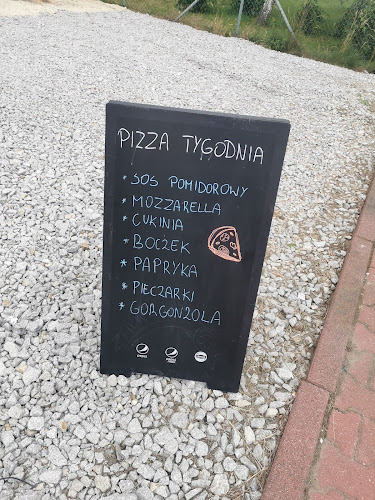 PIZZA TYGODNIA
* SOS POMIDOROWY
* MOZZARELLA
* CUKINIA
* BOCZEK
* PAPRYKA
* PIECZARKI
* GORGONZOLA